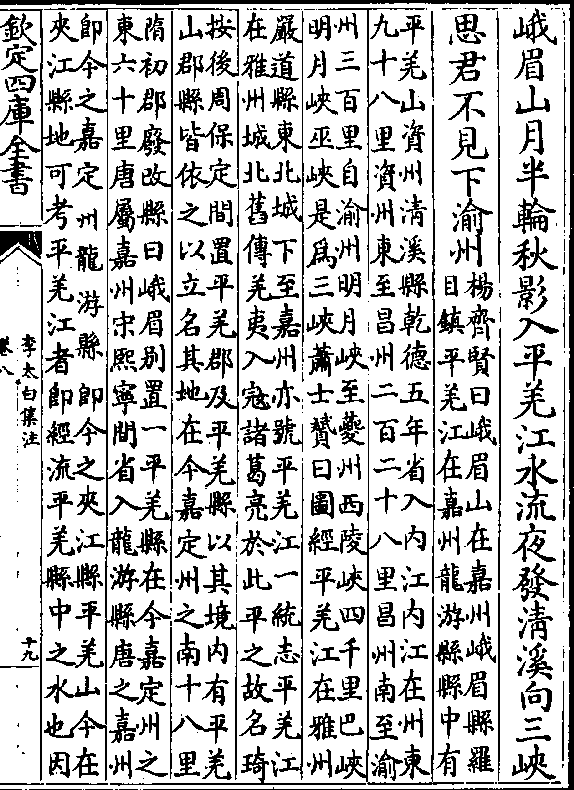 峨眉山月半輪秋影入平羌江水流夜發清溪向三峽
思君不見下渝州
楊齊賢曰峨眉山在嘉州峨眉縣羅
目鎮平羌江在嘉州龍游縣縣中有
平羌山資州清溪縣乾德五年省入内江内江在州東
九十八里資州東至昌州二百二十八里昌州南至渝
州三百里自渝州明月峽至夔州西陵峽四千里巴峽
明月峽巫峽是爲三峽蕭士贇曰圖經平羌江在雅州
嚴道縣東北城下至嘉州亦號平羌江一統志平羌江
在雅州城北舊傳羌夷入寇諸葛亮於此平之故名琦
按後周保定間置平羌郡及平羌縣以其境内有平羌
山郡縣皆依之以立名其地在今嘉定州之南十八里
隋初郡廢改縣曰峨眉别置一平羌縣在今嘉定州之
東六十里唐屬嘉州宋熙寧間省入龍游縣唐之嘉州
即今之嘉定州龍游縣即今之夾江縣平羌山今在
夾江縣地可考平羌江者即經流平羌縣中之水也因
欽定四庫全書
李太白集注
卷八
十九